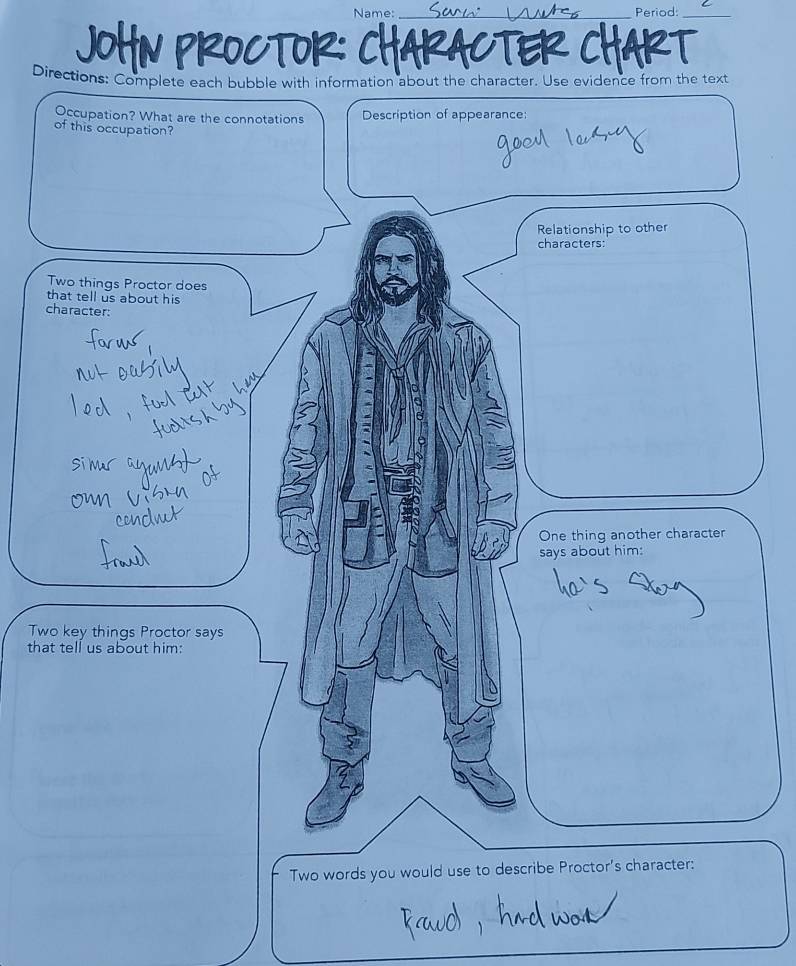 Name: Period: 2
JOHN PROCTOR: CHARACTER CHART
Directions: Complete each bubble with information about the character. Use evidence from the text
Occupation? What are the connotations
of this occupation?
Description of appearance:
good looking
Relationship to other
characters:
Two things Proctor does
that tell us about his
character:
farmr,
not easily
led, fool felt
foolish by him
sinner against
own vision of
conduct
fraud
One thing another character
says about him:
he's strong
Two key things Proctor says
that tell us about him:
Two words you would use to describe Proctor's character:
Fraud, hard work